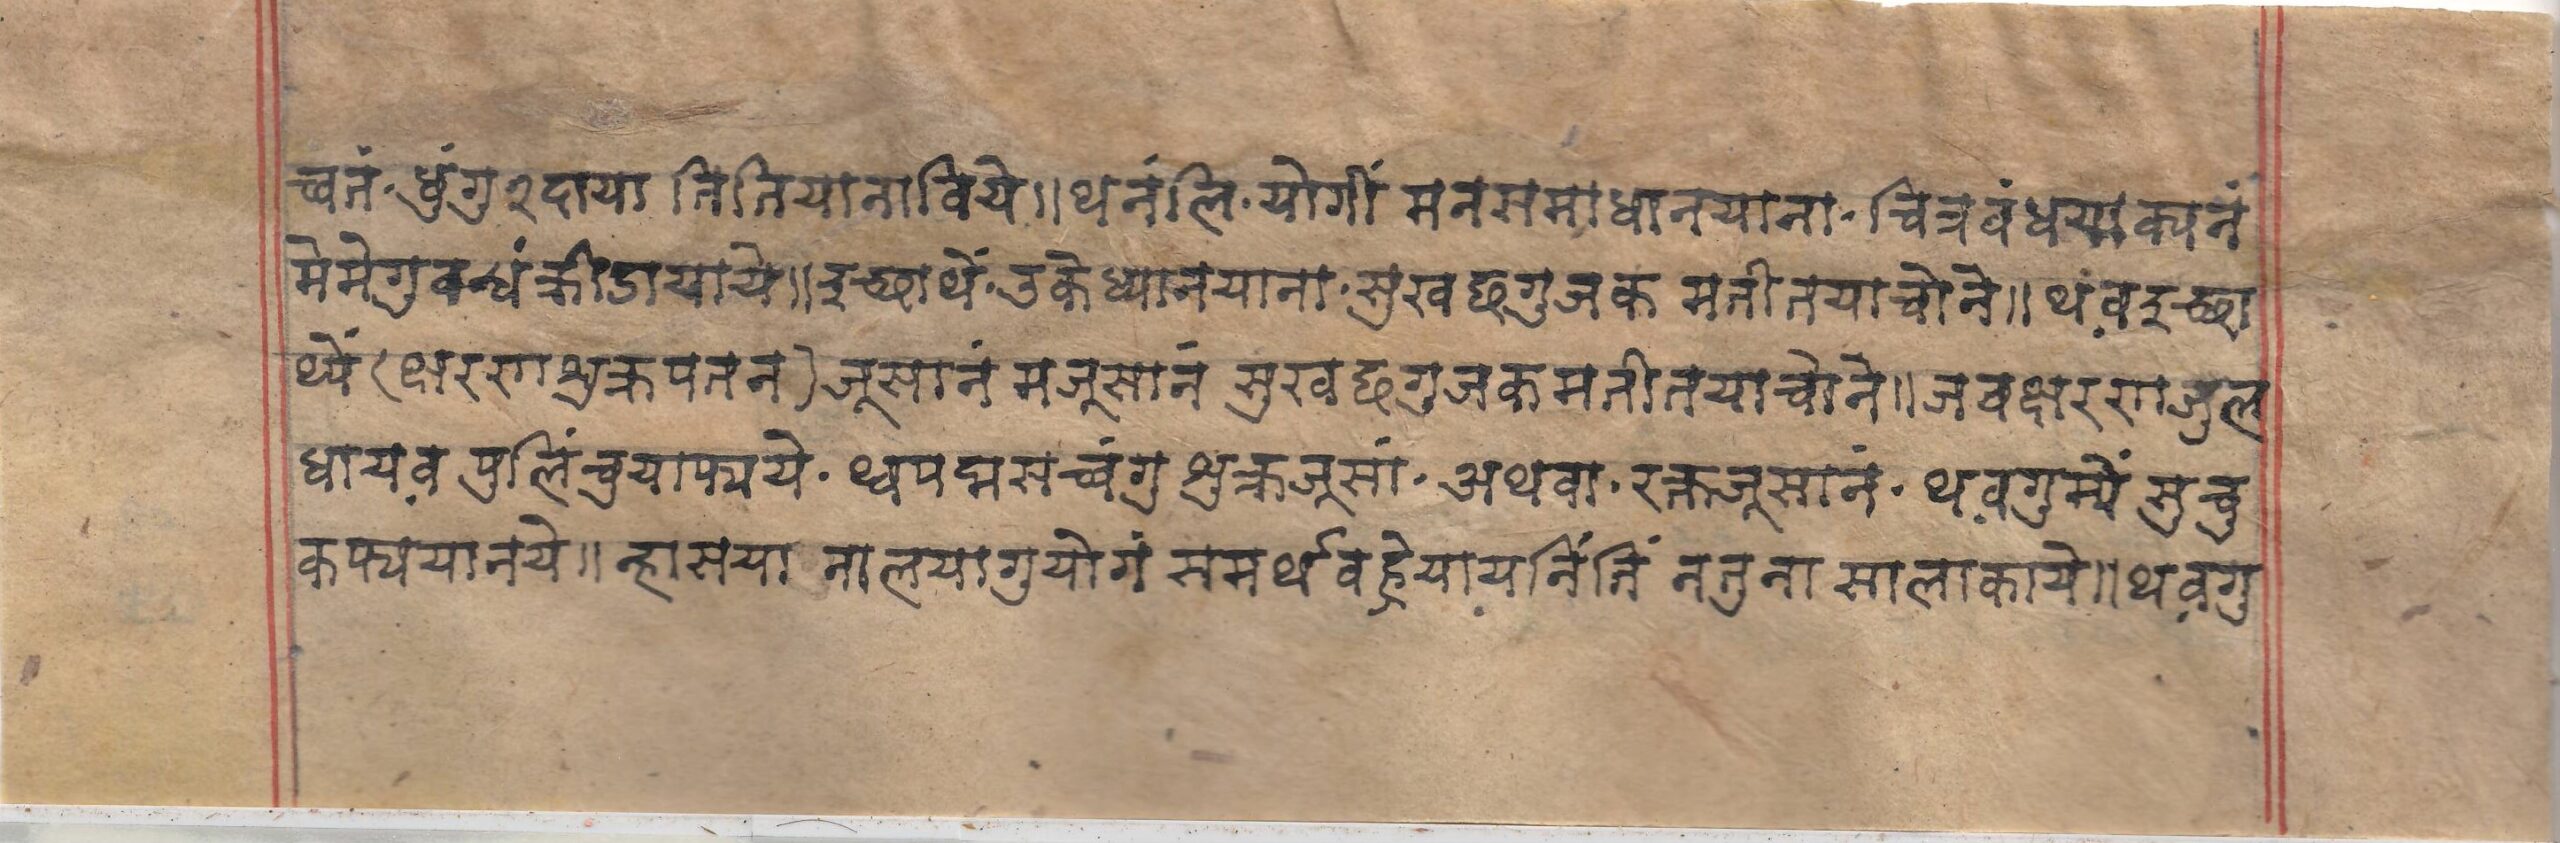 च्वनं· थुंगु २ दाया तितियानाविये॥ थनंलि· योगीं मनसमाधानयाना· चित्रवंधयाक्यनं
मेमेगुवन्धं क्रीडायाये॥ इच्छाथें· उकेध्यानयाना· सुखछगुजक मतीतयाच्वोने॥ थं·वइच्छा
थ्यें (क्षररगाशुक्रपतन) जूसानं मजूसानं सुखछगुजकमतीतयाच्वोने॥ जवक्षररगाजुल
धाय·व पुलिंचुयाफ्यये· थ्वपद्मसच्वंगु शुक्रजूसां· अथवा· रक्तजूसानं· थ·वगुम्यें सुचु
कफ्ययानये॥ न्हासया नालयागुयोगं समर्थवह्रेयायनिंतिं नतुना सालाकाये॥ थ·वगु